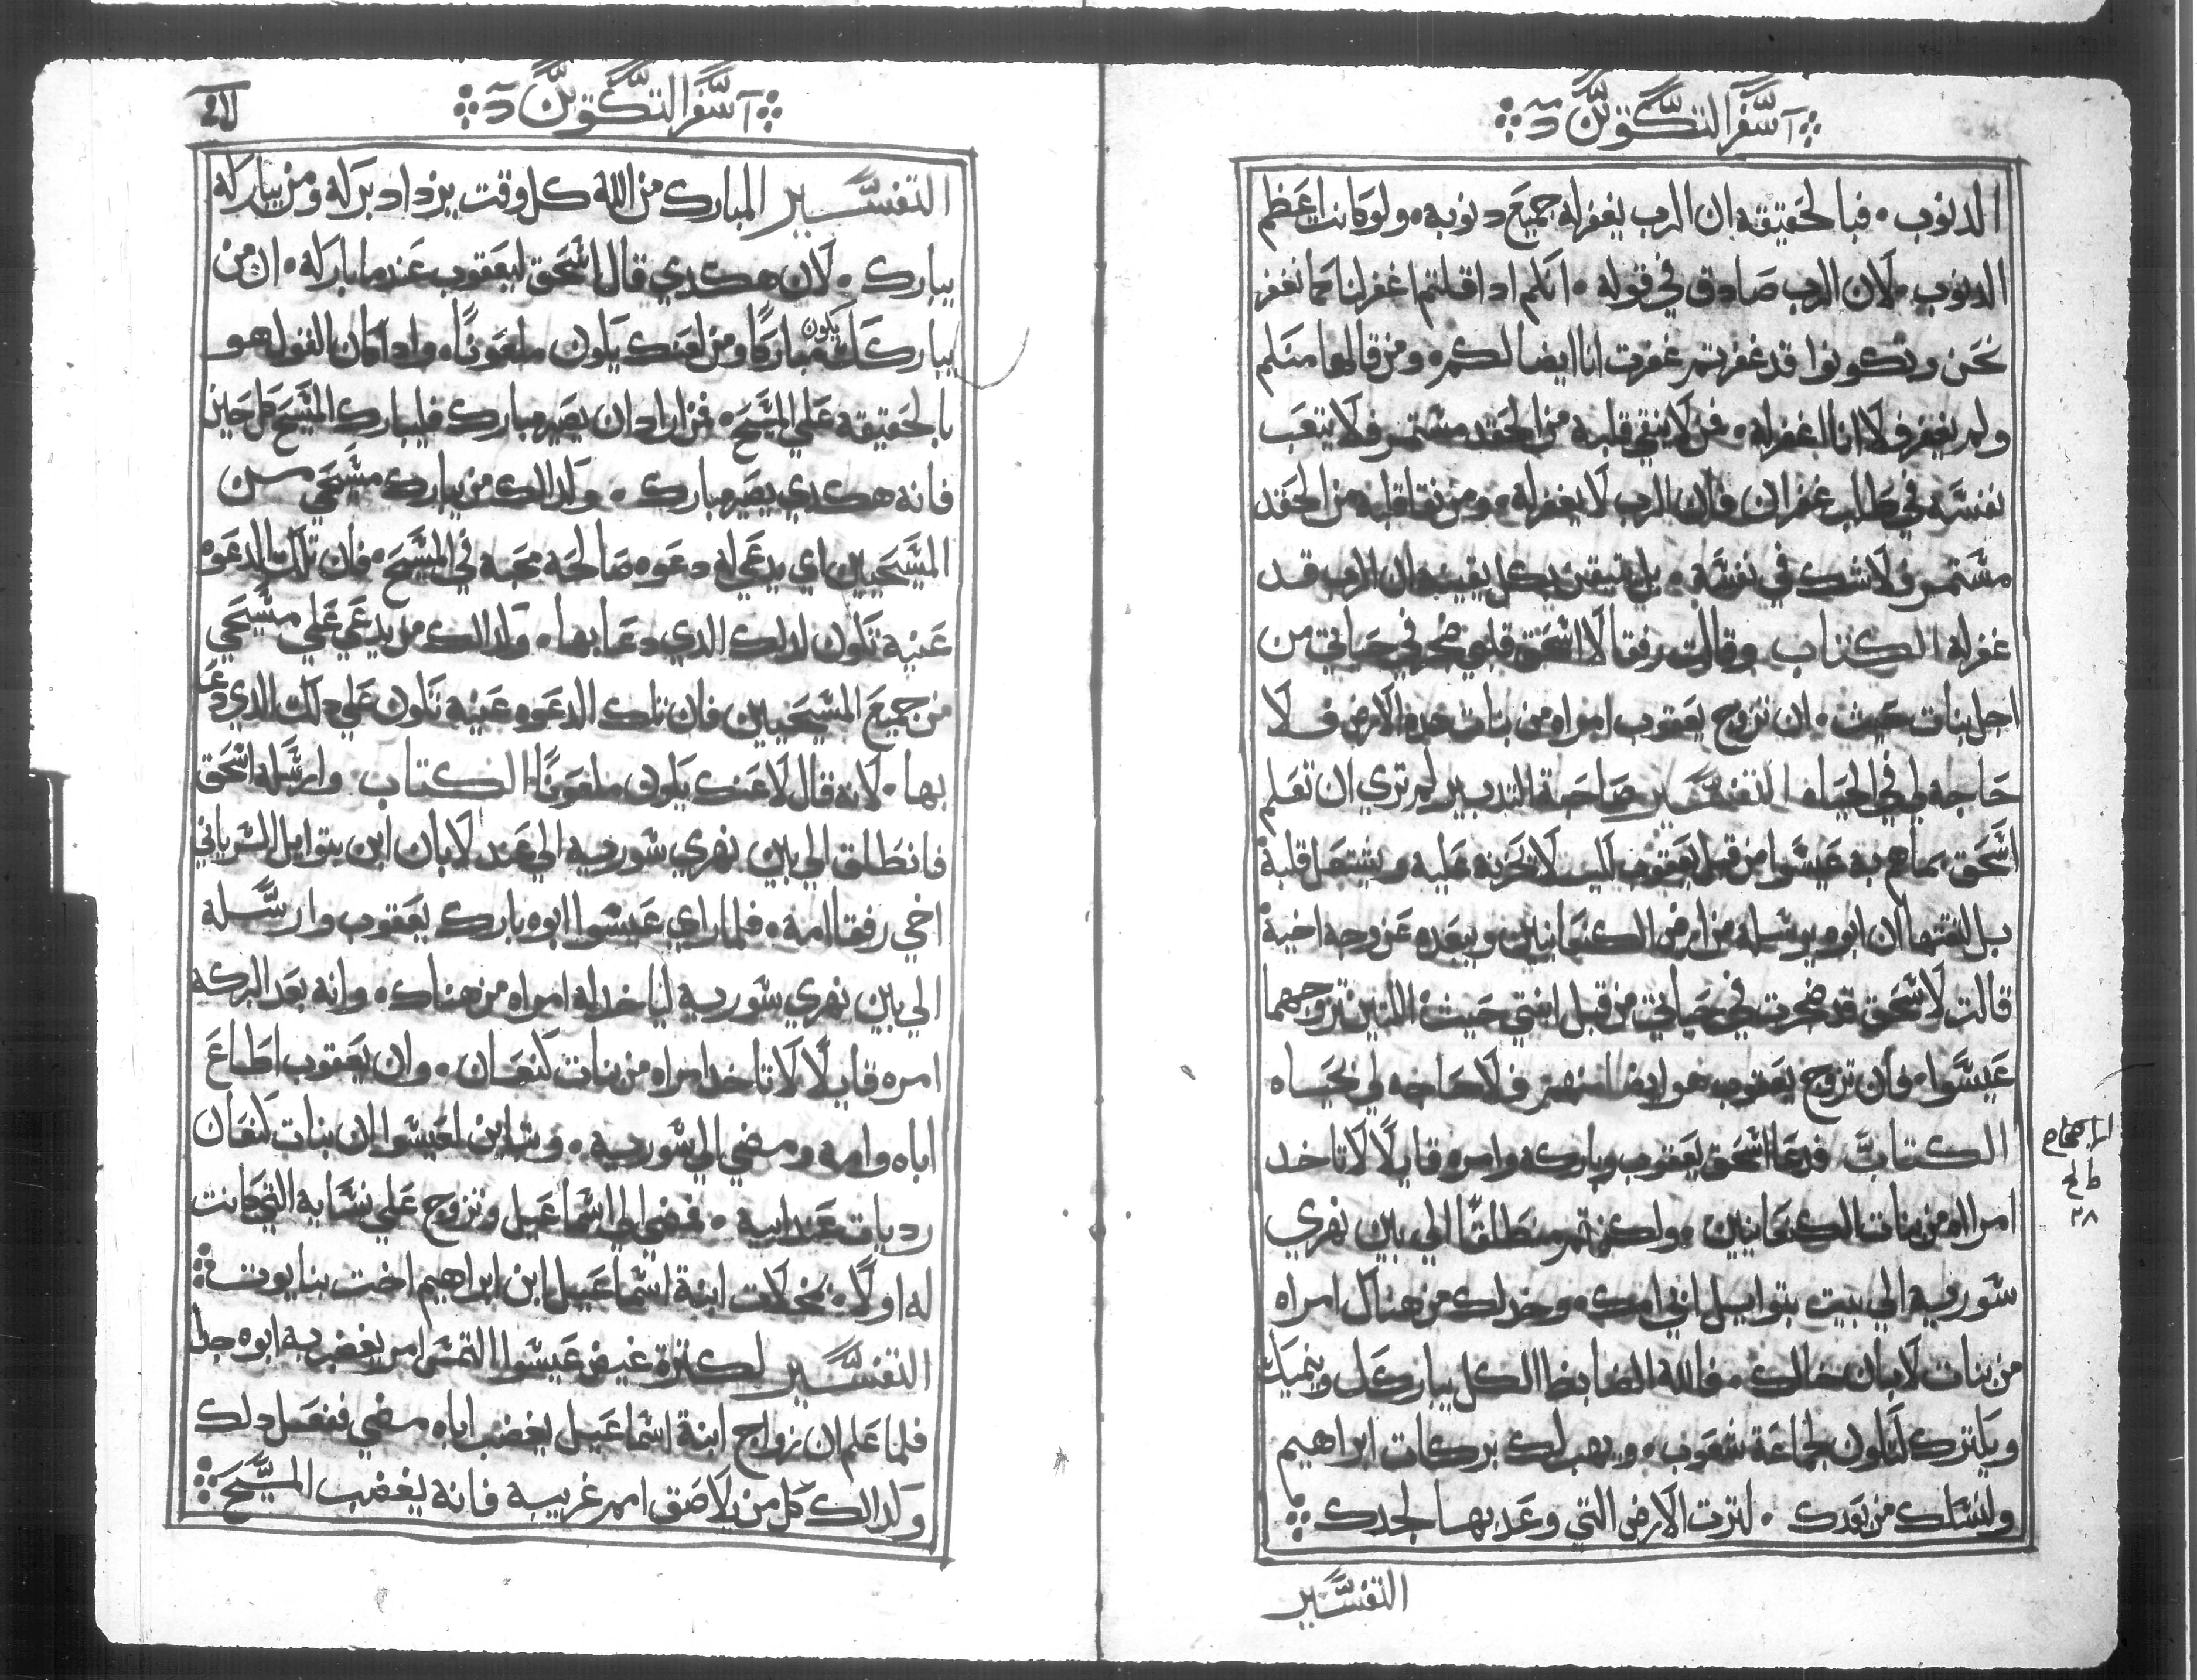 سفر التكوين
الدنوب. فبالحقيقه ان الرب يغفر له جميع دنوبه. ولو كانت اعظم
الدنوب. لان الرب صادق في قوله. انكم ادا قلتم اغفر لنا كما نغفر
نحن وتكونوا قد غفرتم غفرت انا ايضا لكم. ومن قالها منكم
ولم يغفر فلا انا اغفر له. فمن لا ينقي قلبه من الحقد مستمر فلا يتعب
نفسه في طلب غفران فان الرب لا يغفر له. ومن نقا قلبه من الحقد
مستمر فلا شك في نفسه. بل يتيقن بكل يقين ان الرب قد
غفر له الكتاب وقالت رفقا لاسحق قلبي ضجر في حياتي من
اجل بنات حيث. ان تزوج يعقوب امراه من بنات هده الارض فلا
حاجه لي في الحياه التفسير صاحبة التدبير لم تري ان تعلم
اسحق بما هم به عيسوا من قبل يعقوب ليلا تحزنه عليه ويشتعل قلبة
بل التمثها ان ابوه يرسله من ارض الكنعانيين ويبعده عن وجه اخية
قالت لاسحق قد ضجرت في حياتي من قبل ابنتي حيث اللتين تزوجهما
عيسوا. فان تزوج يعقوب هو ايضا منهن فلا حاجه لي بحياه
الكتاب فدعا اسحق يعقوب وباركه وامره قايلا لا تاخد
امراه من بنات الكنعانيين. ولكن قم منطلقا الي بين نهري
سورية الي بيت بتوايل ابي امك. وخد لك من هناك امراه
من بنات لابان خالك. فالله الضابط الكل يباركك وينميك
ويكترك لتكون لجماعة شعوب. ويهب لك بركات ابراهيم
ولنسلك من بعدك. لترت الارض التي وعد بها لجدك
التفسير
الاصحاح
٢٨
سفر التكوين
التفسير المبارك من الله كل وقت يزداد بركه ومن يباركه
يبارك. لان هكدي قال اسحق ليعقوب عندما باركه. ان من
يباركك يكون مباركا ومن لعنك يكون ملعونا. وادا كان القول هو
بالحقيقه علي المسيح. فمن اراد ان يصير مبارك فليبارك المسيح كل حين
فانه هكدي يصير مبارك. وكدالك من يبارك مسيحي من
المسيحيين اي يدعي له دعوه صالحه محبه في المسيح. فان تلك الدعوه
عينه تكون لدلك الدي دعا بها. وكدالك من يدعي علي مسيحي
من جميع المسيحيين فان تلك الدعوه عينه تكون علي دلك الدي دعا
بها. لانه قال لاعنك يكون ملعونا الكتاب وارسله اسحق
فانطلق الي بين نهري سورية الي عند لابان ابن بتوايل السرياني
اخي رفقا امه. فلما راي عيسوا ابوه بارك يعقوب وارسله
الي بين نهري سورية لياخد له امراه من هناك. وانه بعد البركه
امره قايلا لا تاخد امراه من بنات كنعان. وان يعقوب اطاع
اباه وامه ومضي الي سورية. وتباين لعيسوا ان بنات كنعان
رديات عند ابيه. فمضي الي اسماعيل وتزوج علي نسايه التي كانت
له اولا. بمحلات ابنة اسماعيل ابن ابراهيم اخت بنايوت
التفسير لكترة غيض عيسوا التمس امر يغضب به ابوه جدا
فلما علم ان زواج ابنة اسماعيل يغضب اباه مضي ففعل دلك
وكدالك كل من يلاصق امر غريبه فانه يغضب المسيح